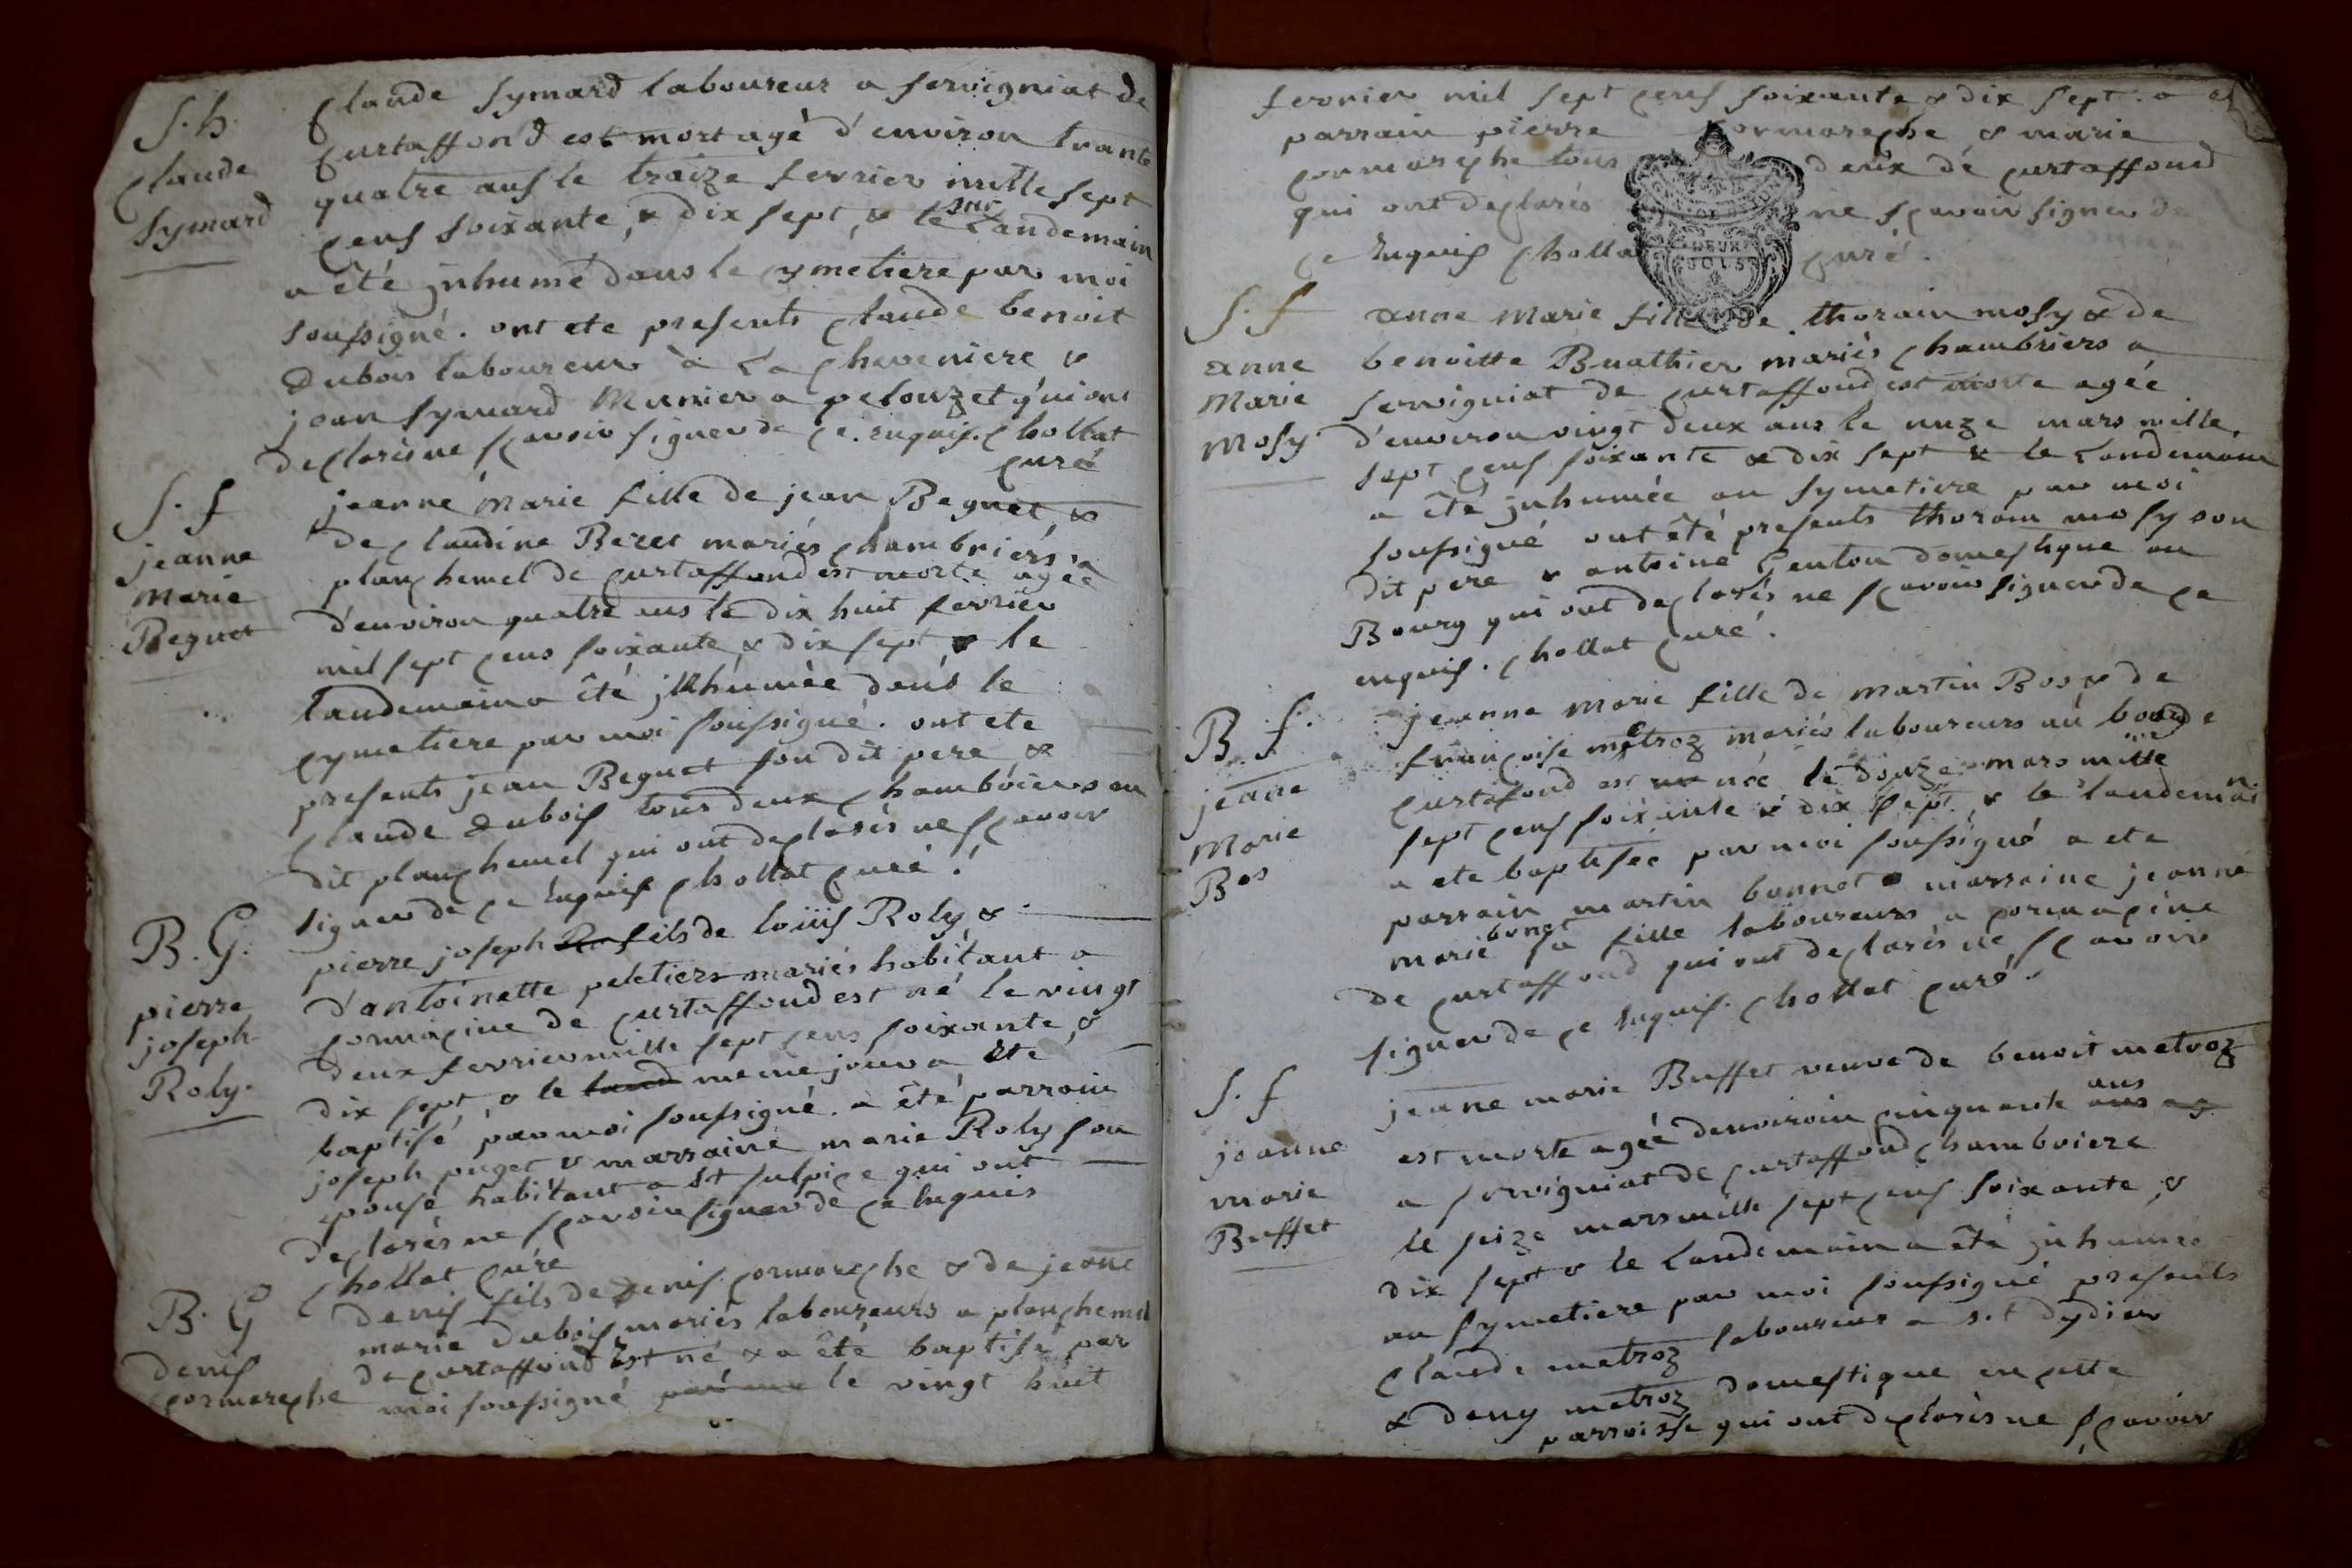 S. h.
Claude
Symard
Claude Symard laboureur a servigniat de
Curtaffond est mort agé d'environ trante
quatre ans le traize fevrier mille sept
cens soixante, & dix sept, & le sur Landemain
a été jnhumé dans le cymetiere par moi
soussigné. ont ete presents Claude benoit
Dubois laboureur à La Cheveniere, &
jean Symard Munier a pelouzet qui ont
declarés ne sçavoir signer de ce. Enquis. Chollat
curé
S. f
jeanne
Marie
Beguet
jeanne Marie fille de jean Beguet, &
de Claudine Beret mariés chambriers a
planchemel de Curtaffond est morte agée
d'environ quatre ans le dix huit fevrier
mil sept cens soixante & dix sept & le
landemain a êté jnhumée dans le
cymetiere par moi soussigné. ont ete
presents jean Beguet son dit pere, &
Claude Dubois tous deux chamboiers au
dit planchemel qui ont declarés ne sçavoir
signer de ce Enquis Chollat curé.
B. G.
pierre
joseph
Roly.
pierre joseph fils de loüis Roly &
d'antoinette peletiers mariés habitant a
cormacine de Curtaffond est né le vingt
deux fevrier mille sept cens soixante, &
dix sept, & le land meme jour a Eté
baptisé par moi soussigné. a êté parrain
joseph puget & marraine marie Roly son
epouse habitant a St sulpice qui ont
declarés ne sçavoir signer de ce Enquis
Chollat curé
B. G
Denis
Cormoreche
Denis fils de Denis Cormoreche & de jeane
marie dubois mariés laboureurs a planchemel
de curtaffond Est né & a êté baptisé par
moi soussigné le vingt huit
fevrier mil sept cens soixante & dix sept. a et
parrain pierre Cormoreche & marie
Cormoreche tous deux dé curtaffond
qui ont declarés ne sçavoir signer de
ce Enquis Chollat curé.
DEUX
SOLS
S. f
anne
Marie
Mosy.
anne Marie fille de thorain mosy & de
benoitte Buathier mariés Chambriers a
servigniat de curtaffond est morte agée
d'environ vingt deux ans le unze mars mille
sept cens soixante & dix sept & le Landemain
a été jnhumée au symetiere par moi
soussigné ont êté presents thorain mosy son
dit pere & antoine Genton domestique au
Bourg qui ont declarés ne sçavoir signer de ce
enquis. Chollat curé.
B. f.
jeane
Marie
Bos
jeanne Marie fille de Martin Bos & de
françoise metroz mariés laboureurs au bourg de
Curtafond est née le douze mars mille
sept cens soixante & dix sept, & le landemain
a ete baptisée par moi soussigné a ete
parrain martin bonnet marraine jeanne
marie bonet sa fille laboureurs a cormacine
de curtaffond qui ont declarés ne sçavoir
signer de ce Enquis. Chollat curé.
S. f
jeanne
marie
Buffet
jeane marie Buffet veuve de benoit metroz
est morte agée denviroin cinquante ans
a servigniat de curtaffond chamboiere
le seize mars mille sept cens soixante, &
dix sept & le Landemain a êté jnhumée
au symetiere par moi soussigné presents
Claude metroz laboureur a s.t dydier
& deny metroz domestique en cette
parroisse qui ont declarés ne sçavoir